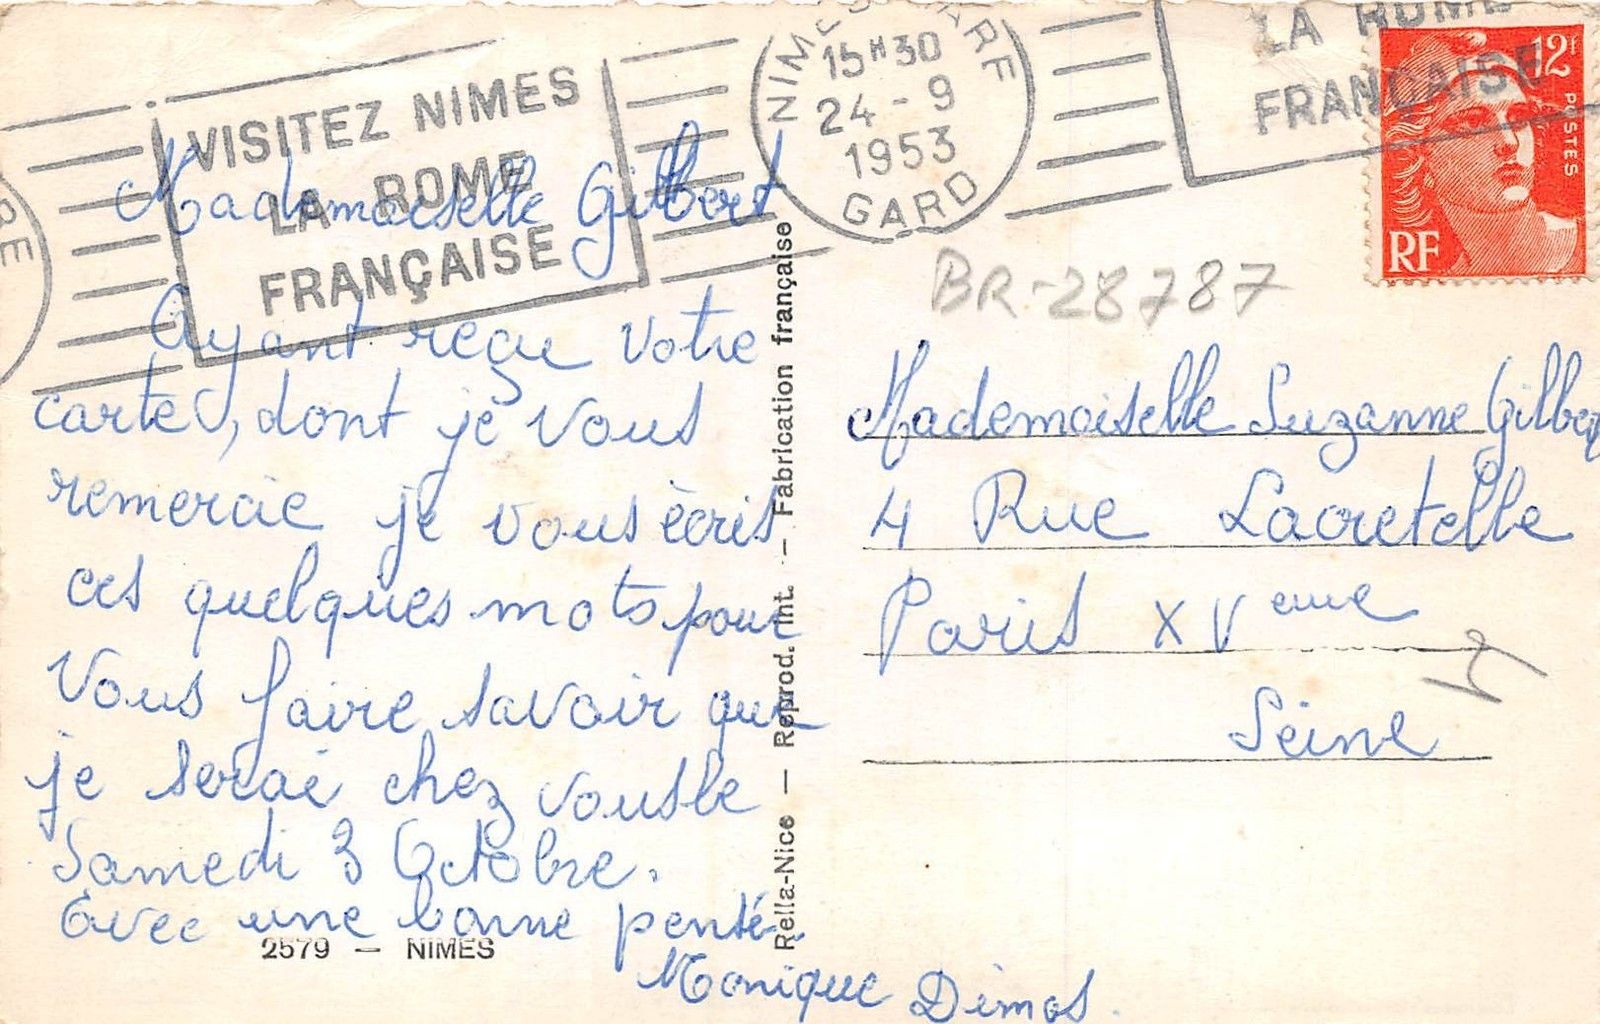 VISITEZ NIMES
LA ROME
FRANÇAISE
NIMES GARE
15H30
24-9
1953
GARD
LA ROME
FRANÇAISE
12f
POSTES
RF
BR-28787
Mademoiselle Gilbert
Ayant reçu votre
carte, dont je vous
remercie je vous écris
ces quelques mots pour
Vous faire savoir que
je serai chez vous le
Samedi 3 Octobre.
Avec une bonne pensée
Monique Dimos.
2579 — NIMES
Rella-Nice — Reprod. Int. — Fabrication française
Mademoiselle Suzanne Gilbert
4 Rue Lacretelle
Paris XVeme
Seine